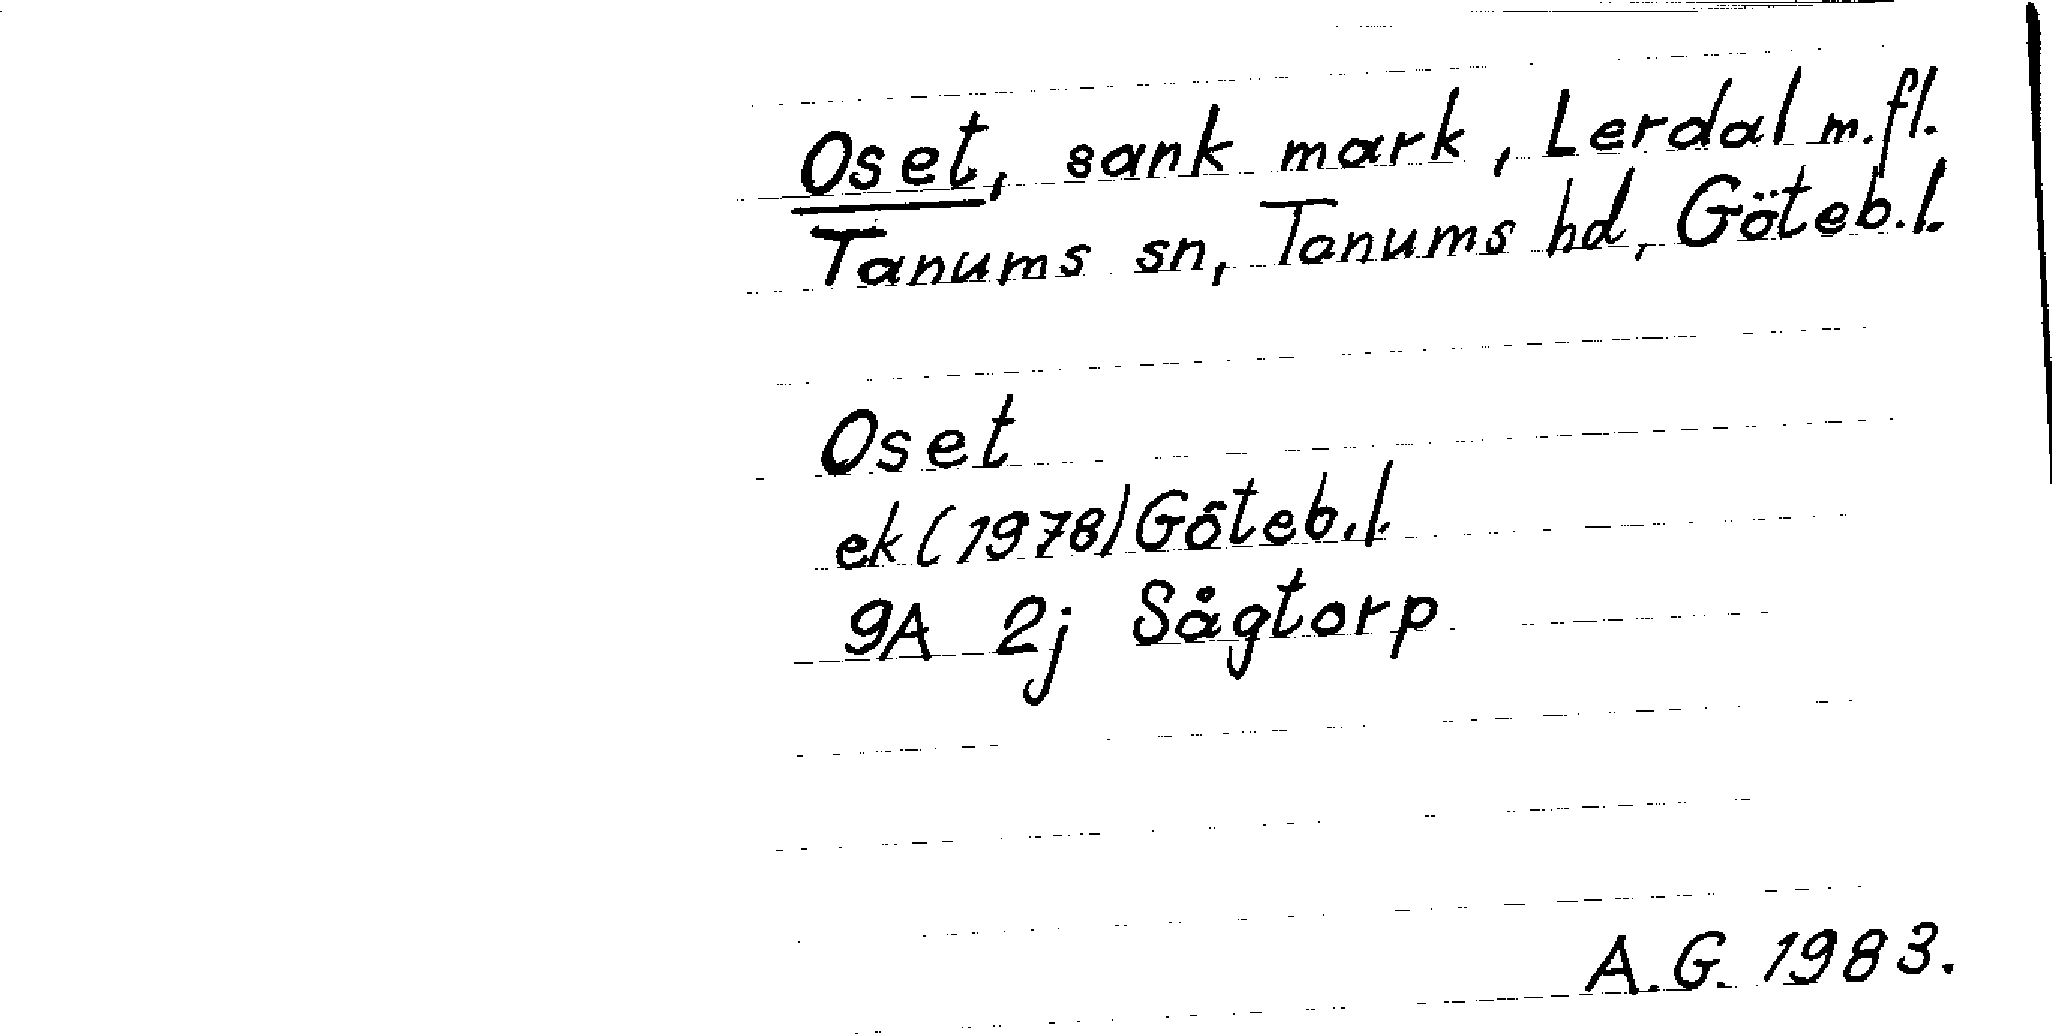 Oset, sank mark, Lerdal m.fl.
Tanums sn, Tanums hd, Göteb.l.
Oset
ek (1978) Göteb.l.
9A 2j Sågtorp
A.G. 1983.